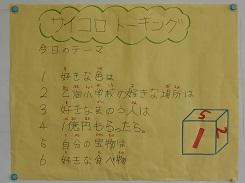 サイコロトーキング
今日のテーマ
1 好きな色は
2 小学校の好きな場所は
3 好きな の 人は
4 1億円もらったら。
5 自分の宝物は
6 好きな食べ物
5
1
2